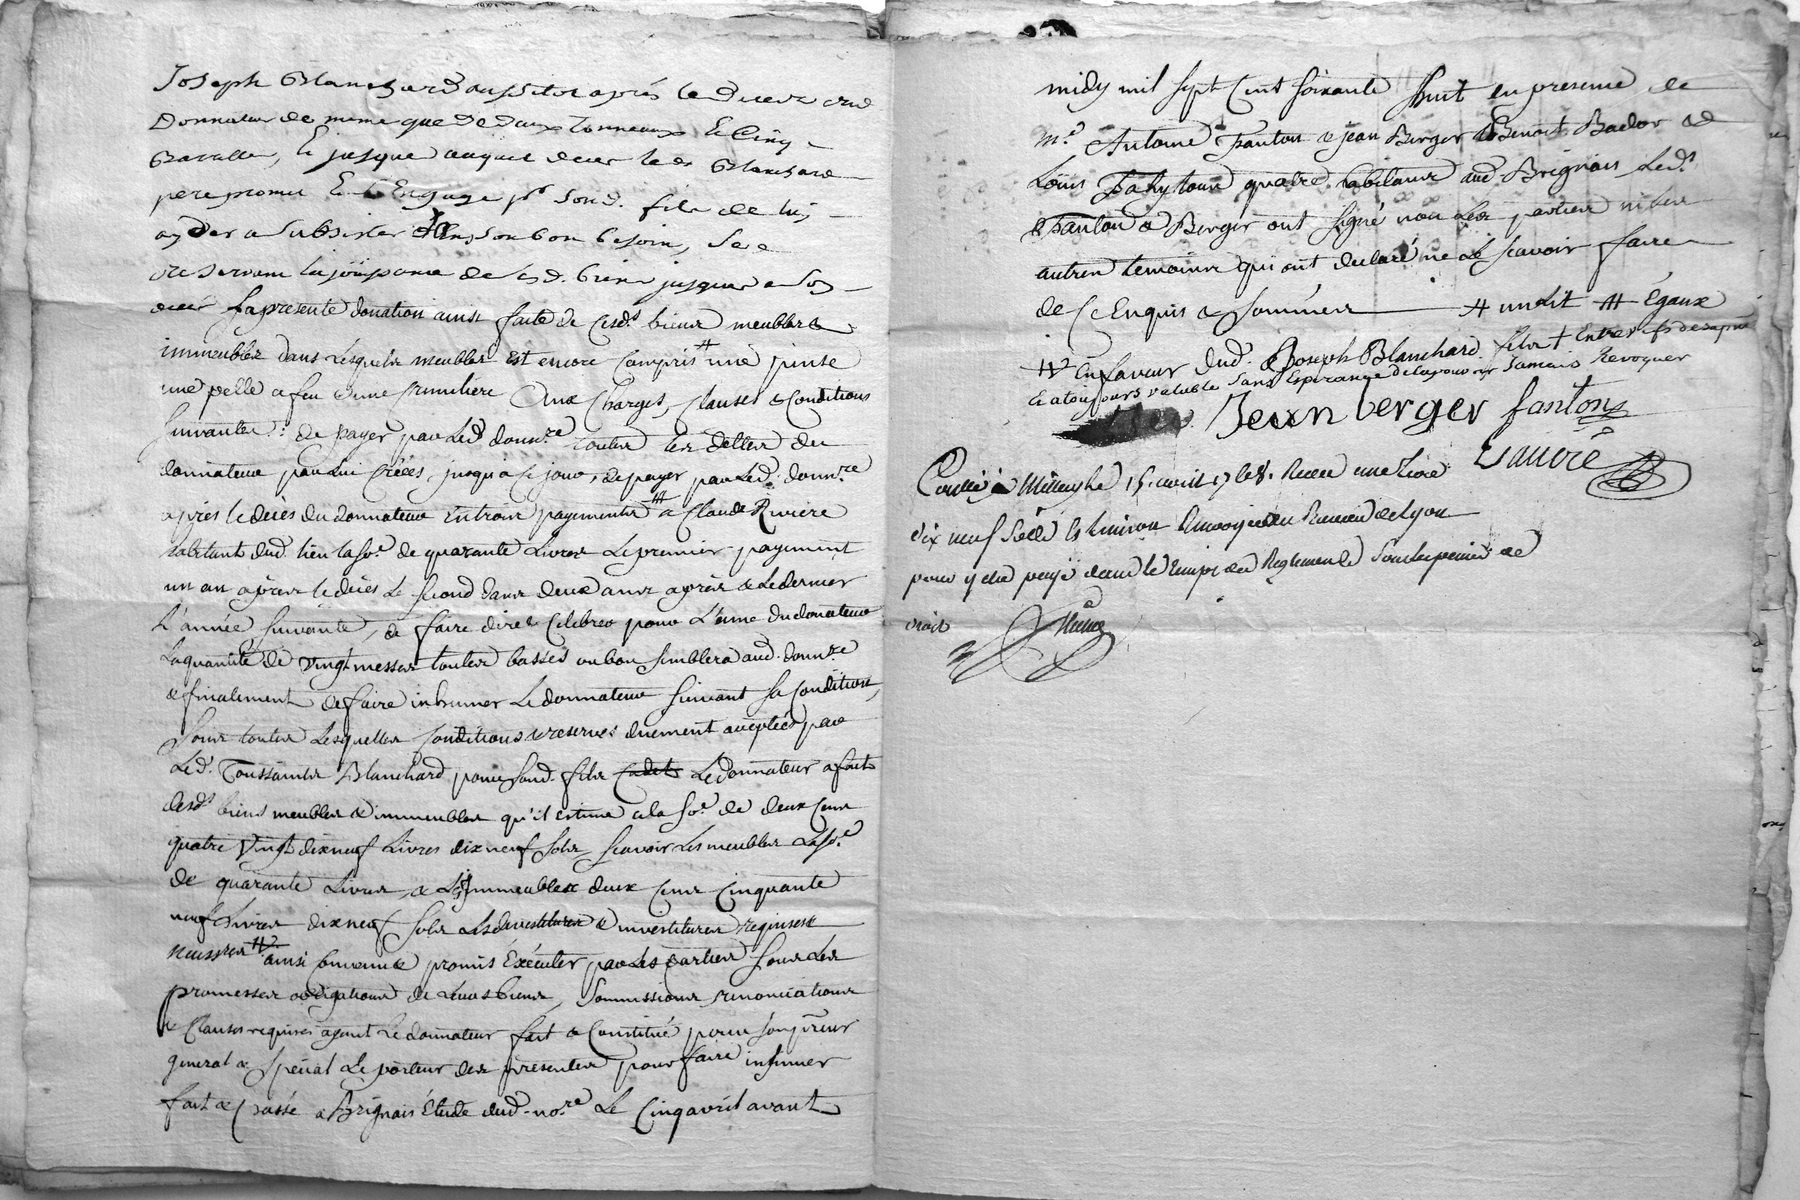 Joseph Blanchard aussitot aprés le deces dud
Donnateur de meme que de deux tonneaux & Cinq
jusque auquel deces led Blanchard
pere promet & s'Engage pr sond. fils de luy
ayder a Subsister dans son bon besoin, se
reservant la joüissance desd. biens jusques a son
deces la presente donation ainsi faite de Cesds biens meubles &
immeubles dans Lesquels meubles est encore Compris une
une pelle a feu & une Aux Charges, Clauses & Conditions
Suivantes: de payer par Led donnre toutes les dettes du
donnateur par Lui Créées, jusqu'a ce jour, de payer par Led. donnre
après le décès du donnateur en trois payements a Claude Riviere
habitant dud. lieu la so.e de quarante Livres Le premier payement
un an après le décès Le second dans deux ans après & Le dernier
L'année suivante, de faire dire & Celebrer pour L'ame du donnateur
La quantité de vingt messes toutes basses ou bon semblera aud. donnre
& finalement de faire inhumer Le donnateur suivant sa Condition,
Sous toutes Lesquelles Conditions & reserves duement acceptées par
Led. Toussaints Blanchard pour sond. fils Cadet Le donnateur a fait
desds biens meubles & immeubles qu'il estime a la so.e de deux Cens
quatre vingt dixneuf Livres dixneuf sols scavoir Les meubles La so.e
de quarante Livres, & Les Immeubles deux Cens Cinquante
neuf Livres dixneuf sols Les devestitures & investitures requises &
ainsi Convenu & promis Exécuter par Les parties sous Les
promesses obligations de Leurs biens, soumissions, renonciations
& Clauses requises ayant Le donnateur fait & Constitué pour son preur
general & special Le porteur des presentes pour faire insinuer
fait & passé a Brignais Étude dud. no.re Le Cinq avril avant
midy mil sept Cent soixante huit en presence de
Me. Antoine Fanton & jean Berger & Benoit Bador &
Louis tous quatre habitans aud Brignais Leds
Fanton & Berger ont signé non Les parties ni les
autres temoins qui ont declaré ne le scavoir faire
de Ce Enquis & Sommés # un Lit # Egaux
# En faveur dud. Joseph Blanchard fils + Entre vifs
& a toujours valable sans Esperance de la pouvoir Jamais Revoquer
Jean berger fanton
15. avril 1768. Receu une livre
dix neuf sols au Bureau de Lyon
pour y etre dans le temps des Reglements sous les peines de
droit